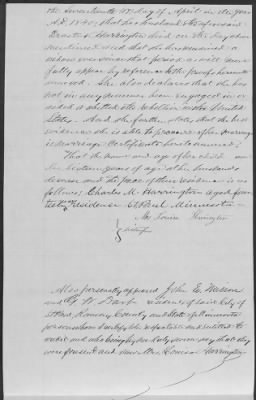 the seventeenth 17 day of April in the year
A.D. 1840; that her husband the aforesaid
Harrington died on the day above
mentioned and that she has remained a
widow ever since that period as will more
fully appear by reference to the proof hereunto
annexed. She also declares that she has
not in any manner been engaged in or
aided or abetted the rebellion in the United
States. And she further states that the best
evidence she is able to procure of her marriage
is marriage certificate hereto annexed.
That the name and age of her child
under sixteen years of age at her husbands
decease and the place of residence is as
follows: Charles M. Harrington aged fourteen
residence St Paul Minnesota
Mrs Louisa Harrington
Also personally appeared John E. Nelson
and W. residents of said City of
St Paul Ramsey County and State of Minnesota
persons whom I certify to be respectable and entitled to
credit and who being by me duly sworn say that they
were present and saw Mrs Louisa Harrington